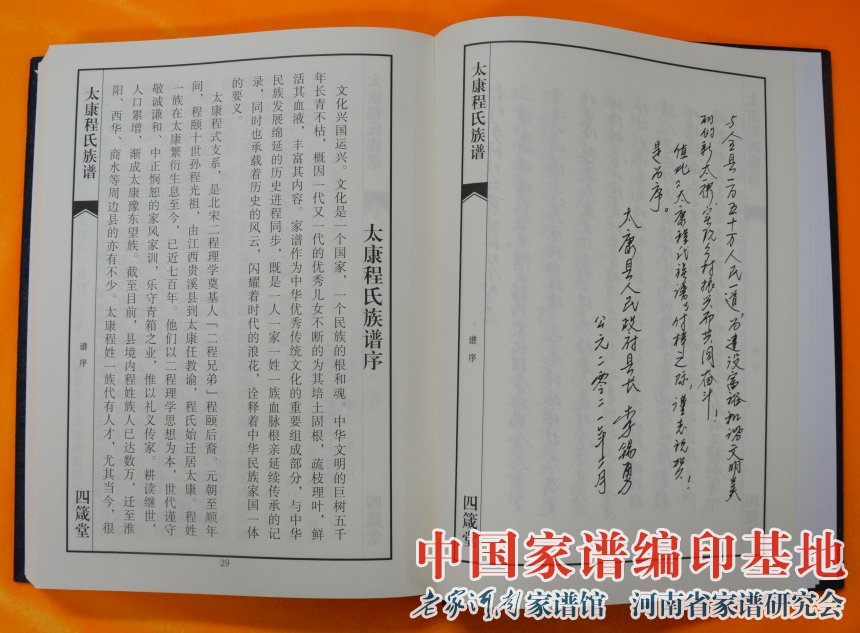 与全县一百五十万人民一道,为建设富裕和谐文明美
丽的新太康,实现乡村振兴而共同奋斗!
值此《太康程氏族谱》付梓之际,谨志祝贺!
是为序。
太康县人民政府县长 李锡勇
公元二零二一年 月
太康程氏族谱
谱序
四箴堂
太康程氏族谱序
文化兴国运兴。文化是一个国家,一个民族的根和魂。中华文明的巨树五千
年长青不枯,概因一代又一代的优秀儿女不断的为其培土固根,疏枝理叶,鲜
活其血液,丰富其内容。家谱作为中华优秀传统文化的重要组成部分,与中华
民族发展绵延的历史进程同步,既是一人一家一姓一族血脉根亲延续传承的记
录,同时也承载着历史的风云,闪耀着时代的浪花,诠释着中华民族家国一体
的要义。
太康程式支系,是北宋二程理学奠基人『二程兄弟』程颐后裔。元朝至顺年
间,程颐十世孙程光祖,由江西贵溪县到太康任教谕,程氏始迁居太康。程姓
一族在太康繁衍生息至今,已近七百年。他们以二程理学思想为本,世代谨守
敬诚谦和、中正悯恕的家风家训,乐守青箱之业,惟以礼义传家。耕读继世,
人口累增,渐成太康豫东望族。截至目前,县境内程姓族人已达数万,迁至淮
阳、西华、商水等周边县的亦有不少。太康程姓一族代有人才,尤其当今,很
太康程氏族谱
谱序
四箴堂
29
中国家谱编印基地
老家河南家谱馆 河南省家谱研究会